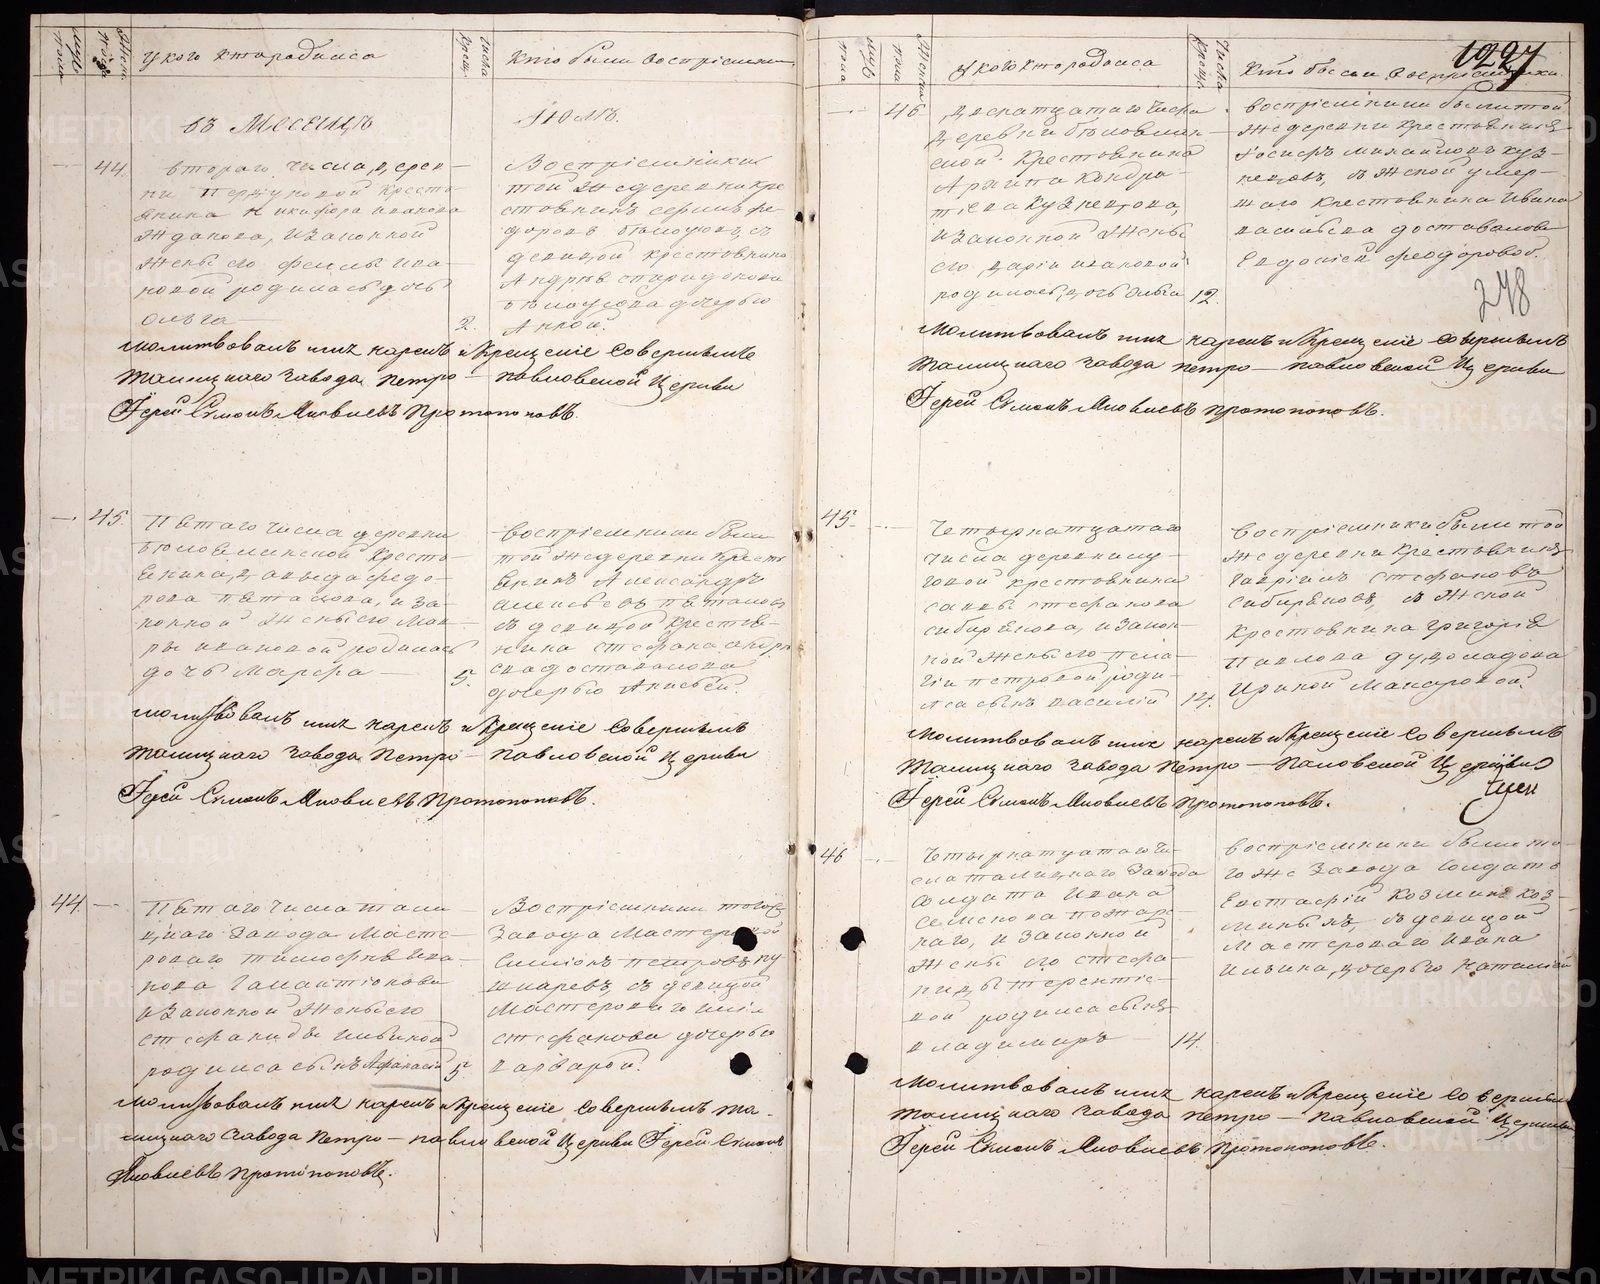 мужска пола
женска пола
У кого кто родился
Числа Крещ.
Кто были восприемники
въ Месецъ
Июлъ.
44.
втораго числа, дерев-
ни Першуковой кресть-
янина Никифора иванова
Жданова, и законной
жены его феклы ива-
новой родилась дочь
Ольга
2.
Восприемники
той же деревни кре
стьянинъ ефимъ фе-
доровъ Белоусовъ, съ
девицой крестьянина
Андрея спиридонова
белоусова дочерью
Анной.
Молитвовалъ имя нарекъ и Крещение Совершилъ
Талицкаго Завода Петро-павловской Церкви
Иерей Симонъ Яковлевъ Протопоповъ.
45.
Пятаго числа деревни
беловлянской Кресть-
янина, давыда федо-
рова пяташова, и за-
конной жены его Мав-
ры ивановой родилась
дочь Марфа
5.
восприемники были
той же деревни Кресть
янинъ Александръ
алексеевъ пяташовъ
съ девицой Крестья-
нина стефана андре
ева доставалова
дочерью Анисьей.
Молитвовалъ имя нарекъ и Крещение Совершилъ
Талицкаго Завода Петро-павловской Церкви
Иерей Симонъ Яковлевъ Протопоповъ.
44.
Пятаго числа тали
цкаго Завода Масте-
роваго тимофея Ива-
нова Галактионова
и законной жены его
стефаниды ильиной
родился сынъ Афанасий
5.
Восприемники тогоже
Завода Мастеровой
Симионъ петровъ ку
шнаревъ, съ девицой
Мастероваго
стефанова дочерью
варварой.
Молитвовалъ имя нарекъ и Крещение Совершилъ Та-
лицкаго Завода Петро-павловской Церкви Иерей Симонъ
Яковлевъ Протопоповъ.
мужска пола
Женска пола
У кого кто родился
Числа Крещ.
Кто были Восприемники
1227
46.
Двенатцатаго числа
деревни беловлян-
ской Крестьянина
Архипа Кондра-
тиева Кузнецова,
и законной жены
его дарьи ивановой
родилась, дочь Ольга
12.
восприемники были той
же деревни крестьянинъ
Иосифъ михайловъ куз-
нецовъ, съ женой умер-
шаго крестьянина Ивана
васильева доставалова
Евдокией феодоровой.
248
Молитвовалъ имя нарекъ и Крещение Совершилъ
Талицкаго Завода петро-павловской Церкви
Иерей Симонъ Яковлевъ Протопоповъ.
45.
Четырнатцатаго
числа деревни лу-
говой крестьянина
саввы стефанова
сибирякова, и закон-
ной жены его пела-
гии петровой роди-
лся сынъ василий
14.
Восприемники были той
же деревни Крестьянинъ
Гаврилъ стефановъ
сибиряковъ, съ женой
Крестьянина григория
Павлова дудоладова
Ириной Макаровой.
Молитвовалъ имя нарекъ и Крещение Совершилъ
Талицкаго Завода Петро-Павловской Церкви
Иерей Симонъ Яковлевъ Протопоповъ.
46
Четырнатцатаго чи-
сла талицкаго Завода
солдата Ивана
семенова пожар-
наго, и законной
жены его стефа-
ниды терентие-
вой родился сынъ
владимиръ
14.
Восприемники были то-
го же Завода Солдатъ
Евстафий Козминъ Коз-
минъ, съ девицой
Мастероваго Ивана
Ильина, дочерью Наталией
Молитвовалъ имя нарекъ и Крещение Совершилъ
Талицкаго Завода Петро-павловской Церкви
Иерей Симонъ Яковлевъ Протопоповъ.
METRIKI.GASO-URAL.RU